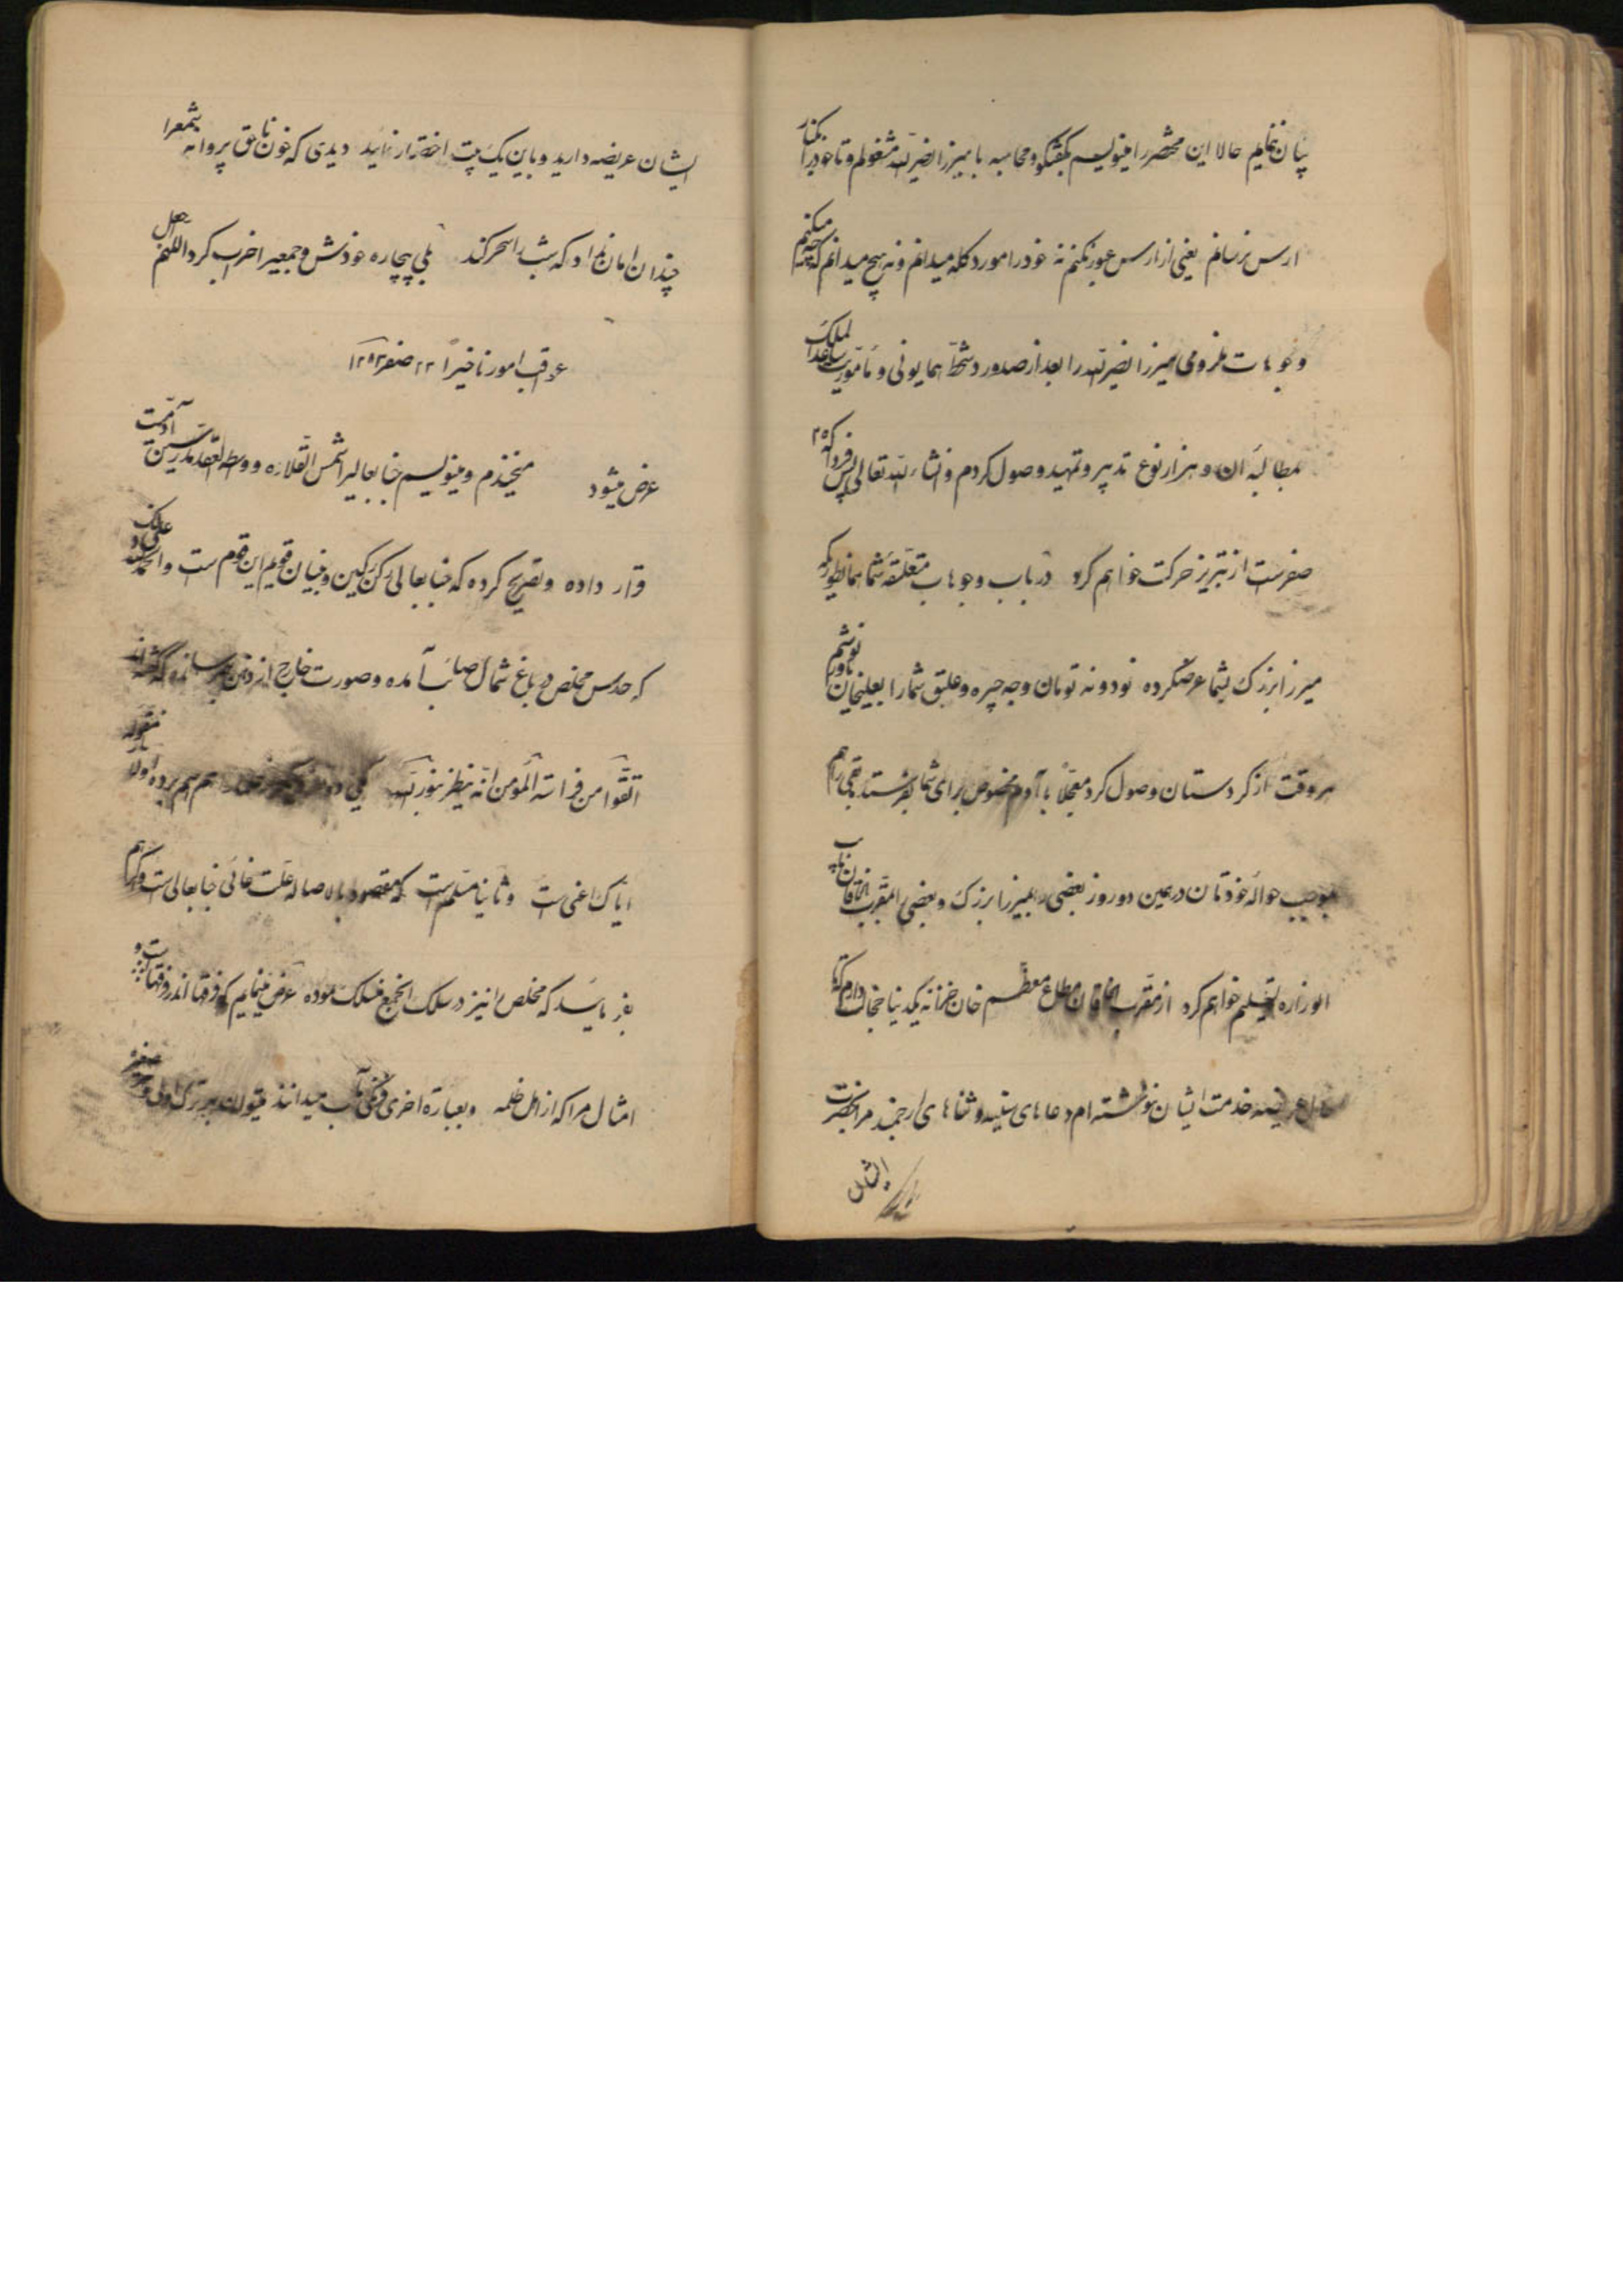 بیان نمایم حالا این مختصر را مینویسم بگفتگو و محاسبه با میرزا نصرالله مشغولم و تا خود را بکنار
ارس نرسانم یعنی از ارس عبور نکنم نه خود را مورد گله میدانم و نه هیچ میدانم که چه میکنم
وجوهات ملزومی میرزا نصرالله را بعد از صدور دستخط همایونی و مأموریت ساعد الملک
بمطالبه آن و هزار نوع تدبیر و تمهید وصول کردم و انشاءالله تعالی پس فردا که ۲۵
صفر است از تبریز حرکت خواهم کرد در باب وجوهات متعلقه شما همانطور که
میرزا بزرگ بشما عرض کرده نود و نه تومان وجه جیره و علیق شما را بعلیخان نوشتم
هر وقت از کردستان وصول کرد معجلا با آدم مخصوص برای شما بفرستد باقی را هم
بموجب حواله خودتان در همین دو روز بعضی به میرزا بزرگ و بعضی بمقرب الخاقان نایب
الوزاره تسلیم خواهم کرد از مقرب الخاقان مطاع معظم خان خیلی خجالت دارم
عریضه خدمت ایشان نوشته ام دعاهای سنیه و ثناهای ارجمند مرا بحضرت
ایشان
ایشان عریضه دارید و باین یک بیت اختصار نمائید دیدی که خون ناحق پروانه شمع را
چندان امان نداد که شب را سحر کند بلی بیچاره خودش و جمعی را خراب کرد اللهم اجعل
عواقب امورنا خیرا ۲۲ صفر ۱۲۹۲
عرض میشود میخندم و مینویسم جنابعالی را شمس القلاده و واسطه العقد مدرسین آدمیت
قرار داده و تصریح کرده که جنابعالی رکن رکین و بنیان قویم این قوم است و الحمدلله علی ذلک
که حدس مخلص در باغ شمال صائب آمده و صورت خارج از ذهن
اتقوا من فراسة المؤمن انه ینظر بنور الله یکی دو هم اسم برده اولا
ایاک اعنی است و ثانیا مسلم است که مقصود بالاصاله علت غائی جنابعالی است
بفرمائید که مخلص را نیز در سلک الجمع منسلک نموده عرض مینمایم که فرقها اندر فرقهاست و
امثال مرا که از اهل ظلمه و بعبارة اخری فرنگی مآب میدانند